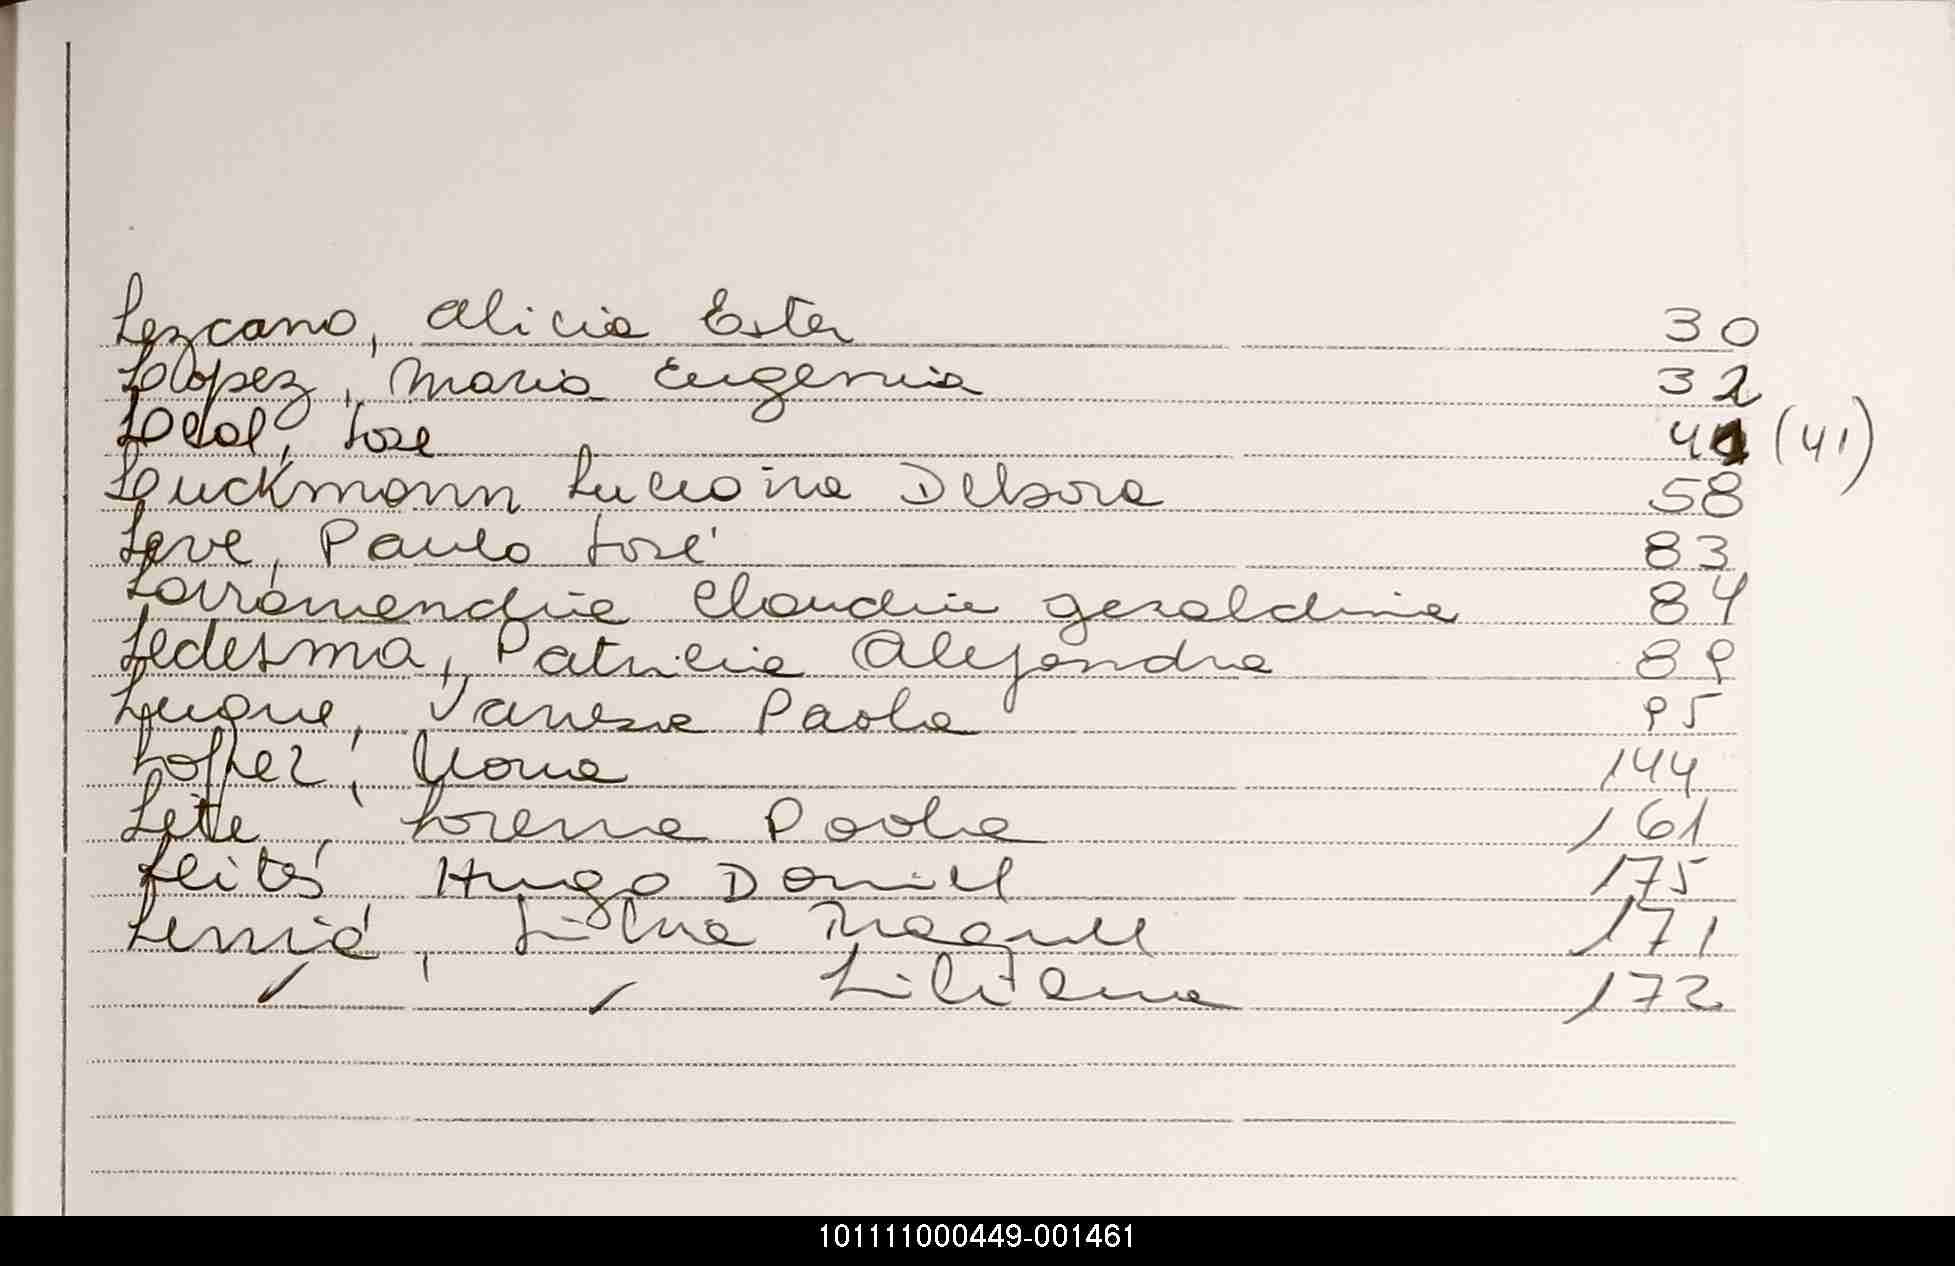 Lezcano, Alicia Ester 30
Lopez, Maria Eugenia 32
Leal, Jose 41 (41)
Luckmann Luciana Debora 58
Leve, Paulo José 83
Larramendia Claudia Geraldine 84
Ledesma, Patricia Alejandra 89
Luque, Vanesa Paola 95
Lopez, 144
Lete, Lorena Paola 161
Leites Hugo Daniel 175
Lemiá, Silvia Raquel 171
〃 〃 Liliana 172
101111000449-001461